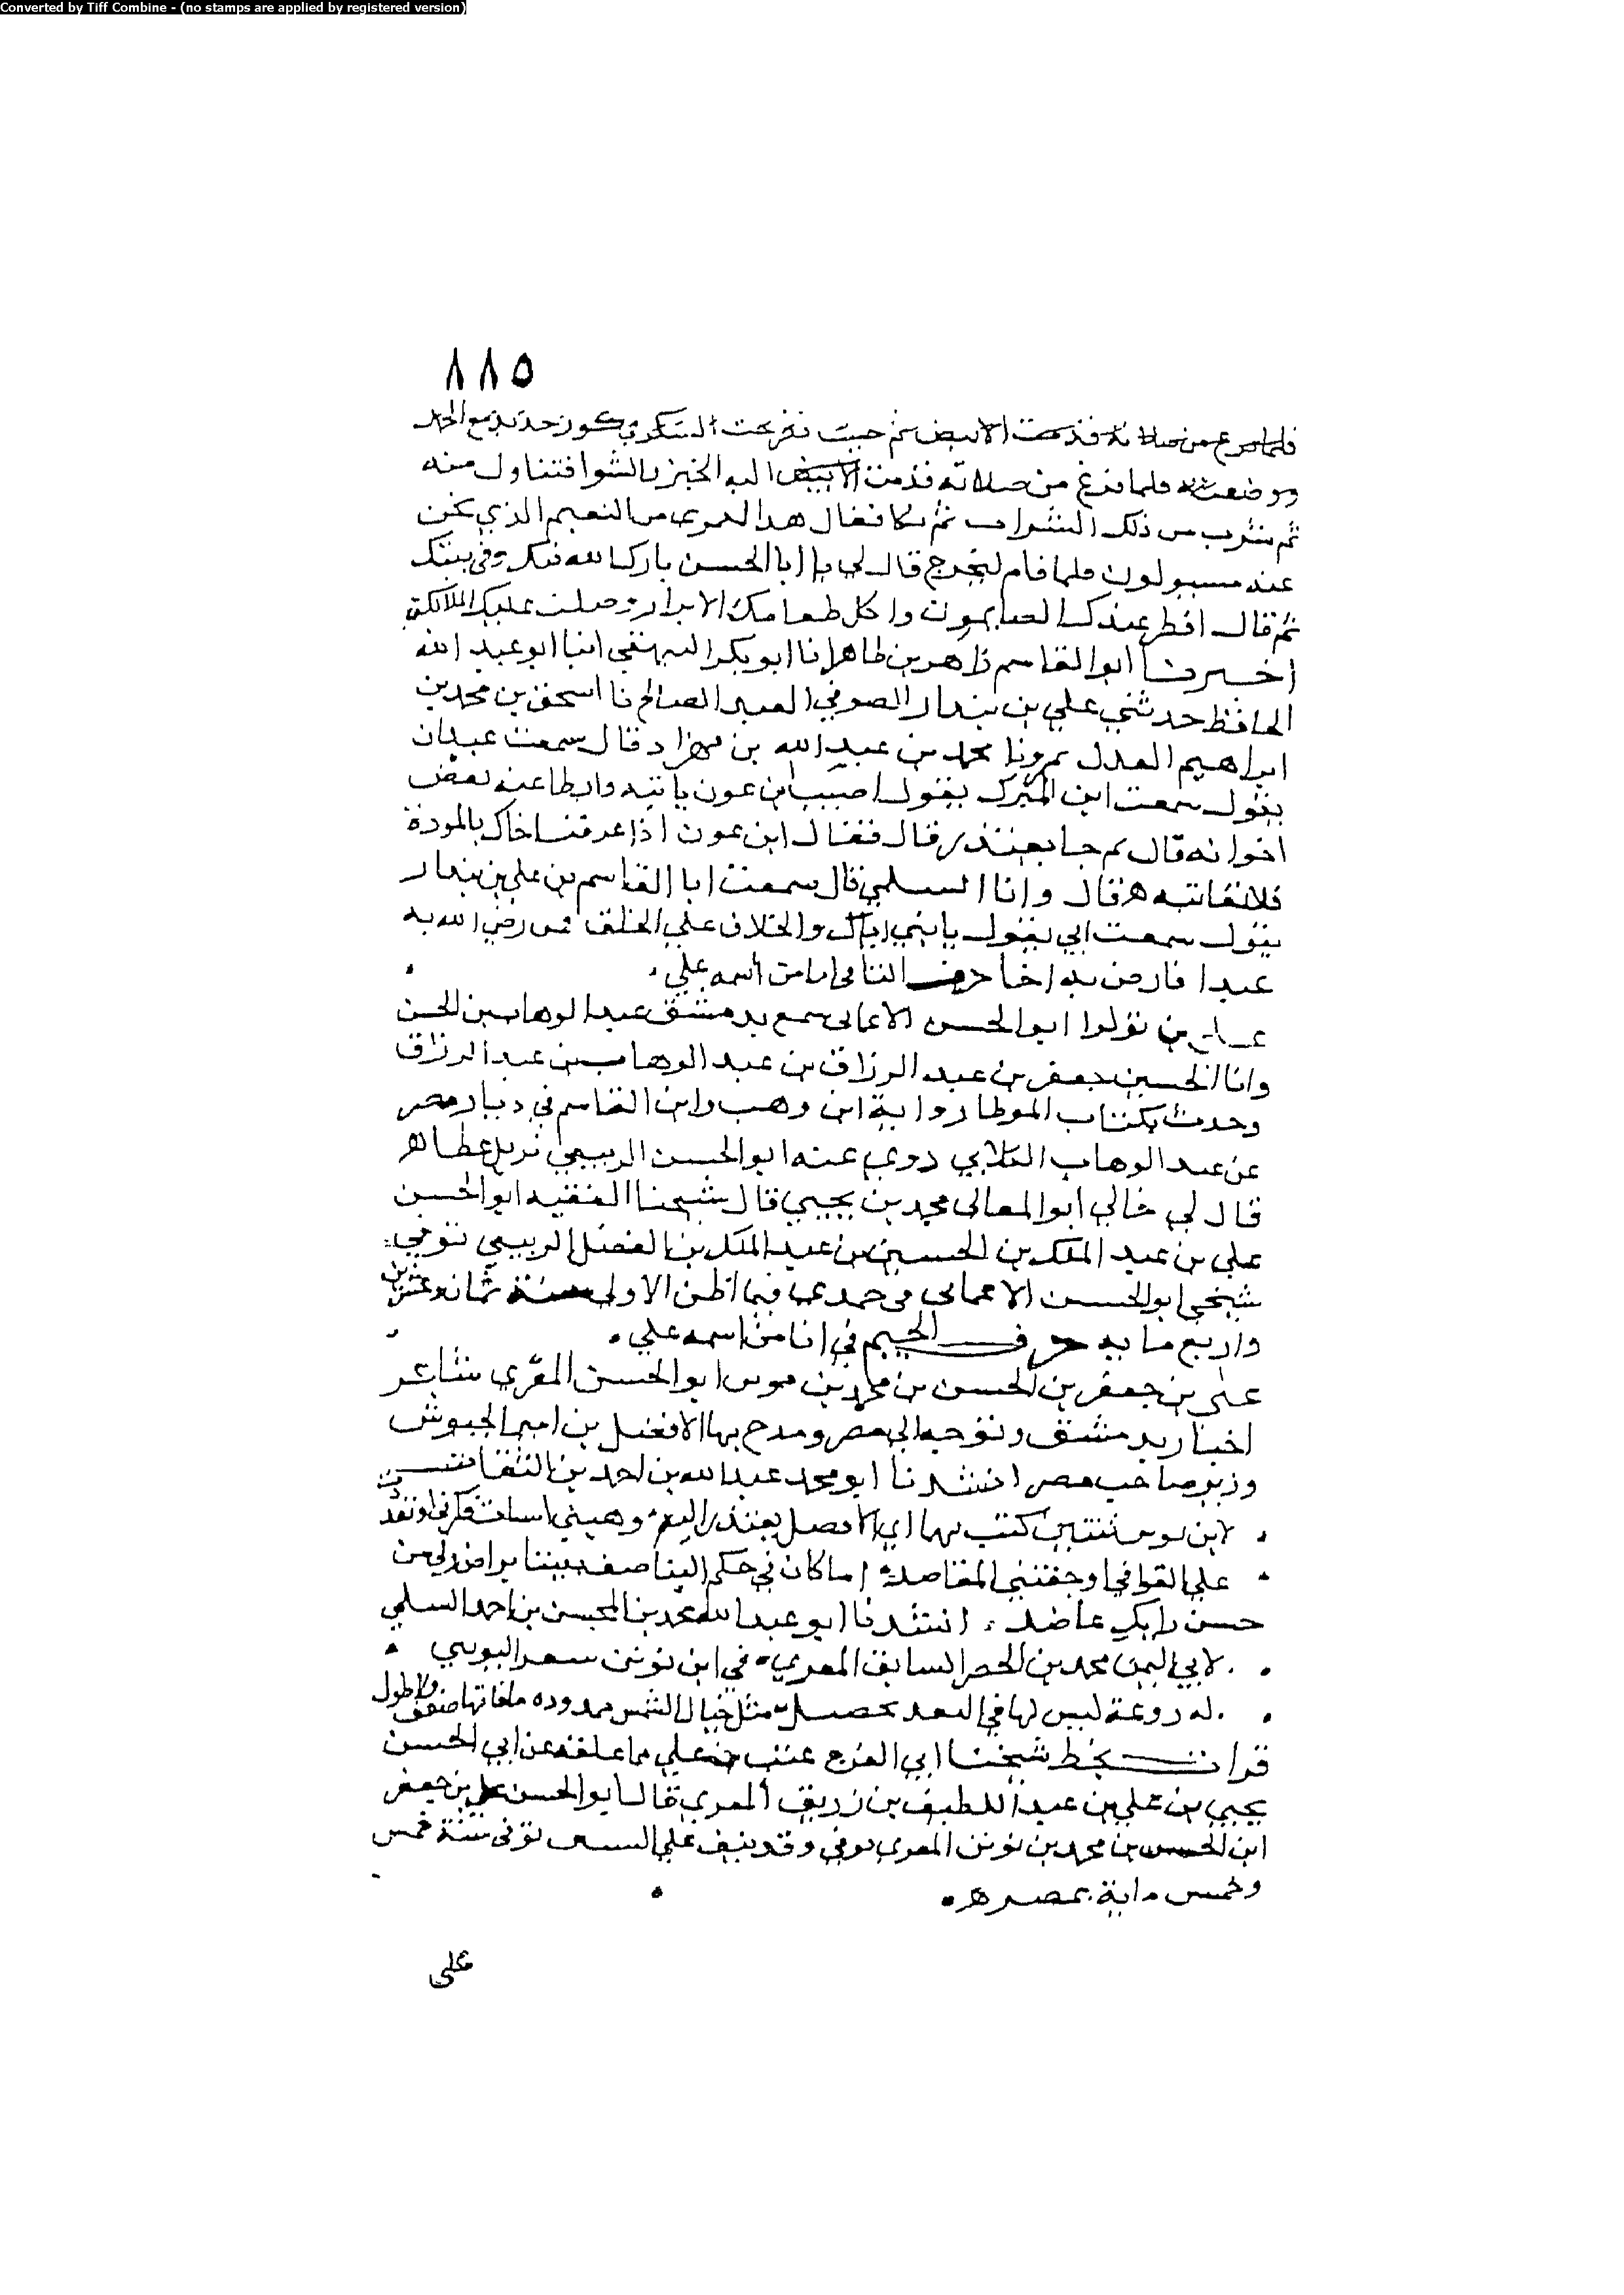 Converted by Tiff Combine - (no stamps are applied by registered version)
٨٨٥
فلما فرغ من صلاته قدمت الابيض ثم جيت السكري كوز جديد مع
ووضعته فلما فرغ من صلاته قدمت الابيض اليه الخبز بالشوا فتناول منه
ثم شرب من ذلك الشراب ثم بكا فقال هذا لعمري من النعيم الذي نحن
عنه مسيولون فلما قام ليخرج قال لي يا ابا الحسن بارك الله فيك وفي بيتك
ثم قال افطر عندك الصايمون واكل طعامك الابرار وصلت عليك الملائكة
اخبرنا ابوا القاسم زاهر بن طاهر انا ابو بكر البيهقي انبا ابو عبد الله
الحافظ حدثني علي بن بندار الصوفي العبد الصالح نا اسحق بن محمد بن
ابراهيم العدل بمرونا محمد بن عبد الله بن قهزاد قال سمعت عبدان
يقول سمعت ابن المبرك يقول ابن عون ياتيه وابطا عنه بعض
اخوانه قال ثم جا يعتذر قال فقال ابن عون اذا عرفت اخاك بالمودة
فلا تعاتبه هـ قال وانا السلمي قال سمعت ابا القاسم بن علي بن بندار
يقول سمعت ابي يقول يا بني اياك والخلاف علي الخلق فمن رضي الله به
عبدا فارض به اخا حرف التا في ابا من اسمه علي
علي بن تولوا ابو الحسن سمع بدمشق عبد الوهاب بن الحسن
وانا الحسين جعفر بن عبد الرزاق بن عبد الوهاب بن عبد الرزاق
وحدث بكتاب الموطا رواية ابن وهب وابن القاسم في ديار مصر
عن عبد الوهاب الكلابي روي عنه ابو الحسن الربيعي
قال لي خالي ابو المعالي محمد بن يحيي قال شيخنا الفقيه ابو الحسن
علي بن عبد الملك بن الحسين بن عبد الملك بن الفضل الربيعي توفي
شيخي ابو الحسن في جمدي فيما اظن الاولى سنة ثمان وعشرين
واربع مايه حرف الجيم في ابا من اسمه علي
علي بن جعفر بن الحسن بن محمد بن ابو الحسن المعري شاعر
اجتاز بدمشق وتوجه الى مصر ومدح بها الافضل بن امير الجيوش
وزير صاحب مصر انشدنا ابو محمد عبد الله بن احمد بن
لابن بيتين كتب بهما الي الافضل يعتذر اليه وهبني اسات
علي القوافي وجفتني المقاصد اما كان في حكم بيننا من
حسن رايك عاضد انشدنا ابو عبد الله محمد بن المحسن بن احمد السلمي
لابي اليمن محمد بن الخضر السابق المعري في ابن
له روعة ليس لها في البعد تحصيل مثل خيال الشمس ممدوده ولا طول
قرات بخط شيخنا ابي الفرج غيث بن علي مما علقه عن ابي الحسن
يحيي بن علي بن عبد اللطيف بن زريق المعري قال ابو الحسن علي بن جعفر
ابن الحسن بن محمد بن المعري توفي وقد نيف علي توفي سنة خمس
وخمس ماية بمصر هـ
على